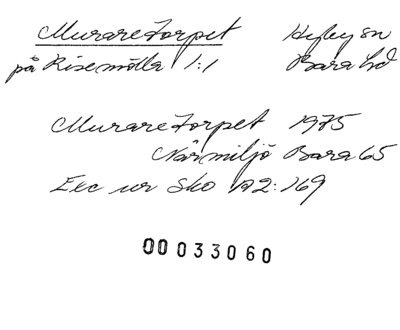 Muraretorpet Hyby sn
på Risemölla 1:1 Bara hd
Muraretorpet 1975
Närmiljö Bara 65
Exc ur Sko A2:169
00033060